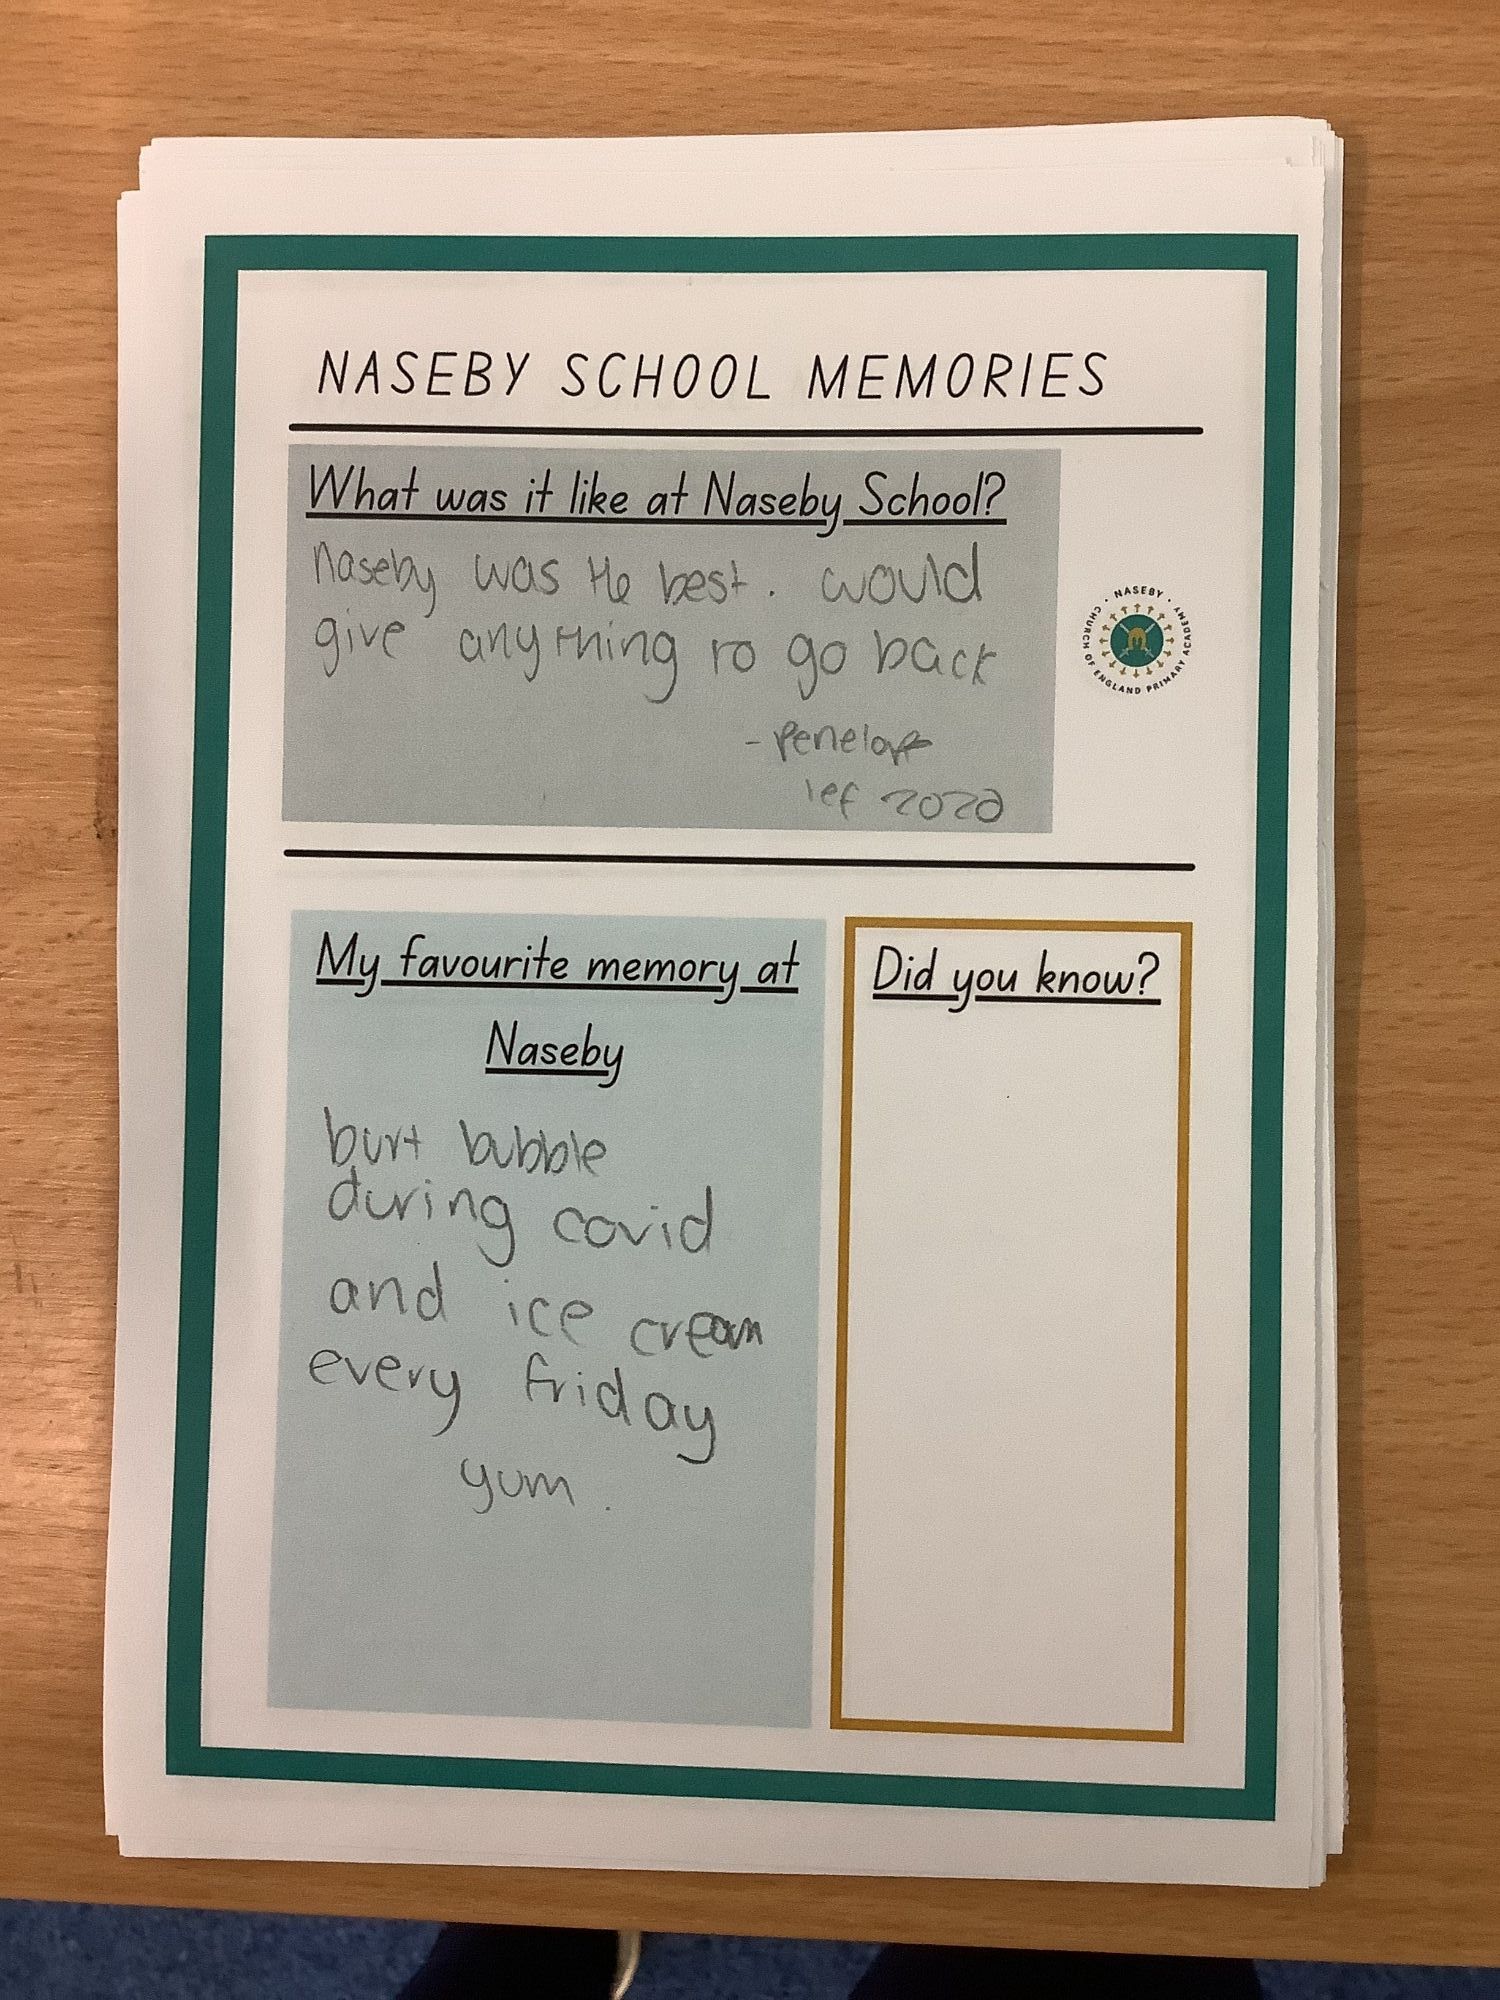 NASEBY SCHOOL MEMORIES
What was it like at Naseby School?
Naseby was the best. would
give anything to go back
- Penelope
lef 2020
NASEBY · CHURCH OF ENGLAND PRIMARY ACADEMY ·
My favourite memory at
Naseby
burt bubble
during covid
and ice cream
every friday
yum.
Did you know?